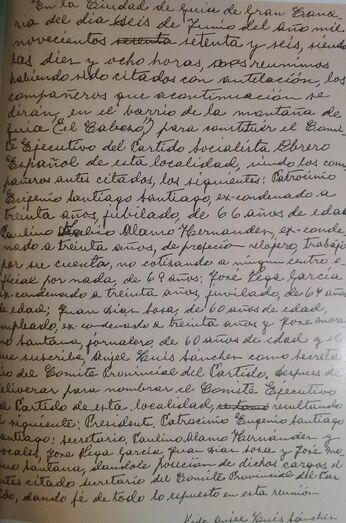 En la Ciudad de Guia de Gran Cana-
ria del dia seis de Junio del año mil
novecientos setenta setenta y seis, siendo
las diez y ocho horas, nos reunimos
habiendo sido citados con antelación, los
compañeros que acontinuación se
dirán, en el barrio de la montaña de
Guia ("el Caboso") para constituir el Comi-
te Ejecutivo del Partido Socialista Obrero
Español de esta localidad, siendo los com-
pañeros antes citados, los siguientes: Patrocinio
Eugenio Santiago Santiago, ex-condenado a
treinta años, jubilado, de 66 años de edad
Paulino Alamo Hernandez, ex-conde-
nado a treinta años, de profeción relojero, trabaja
por su cuenta, no cotisando a ningun centro o-
ficial por nada, de 69 años; José Vega Garcia
ex-condenado a treinta años, juvilado, de 64 años
de edad; Juan Dias Sosa, de 60 años de edad,
empleado, ex-condenado a treinta años y José More-
no Santana, jornalero, de 60 años de edad y el
que suscriba, Anjel Luis Sánchez como secreta-
rio del Comite Provincial del Partido, despues de
deliverar para nombrar el Comite Ejecutivo
de Partido de esta localidad, resultando
el siguiente: Presidente, Patrocinio Eugenio Santiago
Santiago: secretario, Paulino Alamo Hernández y
vocales, José Vega Garcia, Juan Dias Sosa y José Mo-
reno Santana, dandole posición de dichos cargos el
antes citado secretario del Comite Provincial del Par-
tido, dando fé de todo lo expuesto en esta reunión
Anjel Luis Sánchez